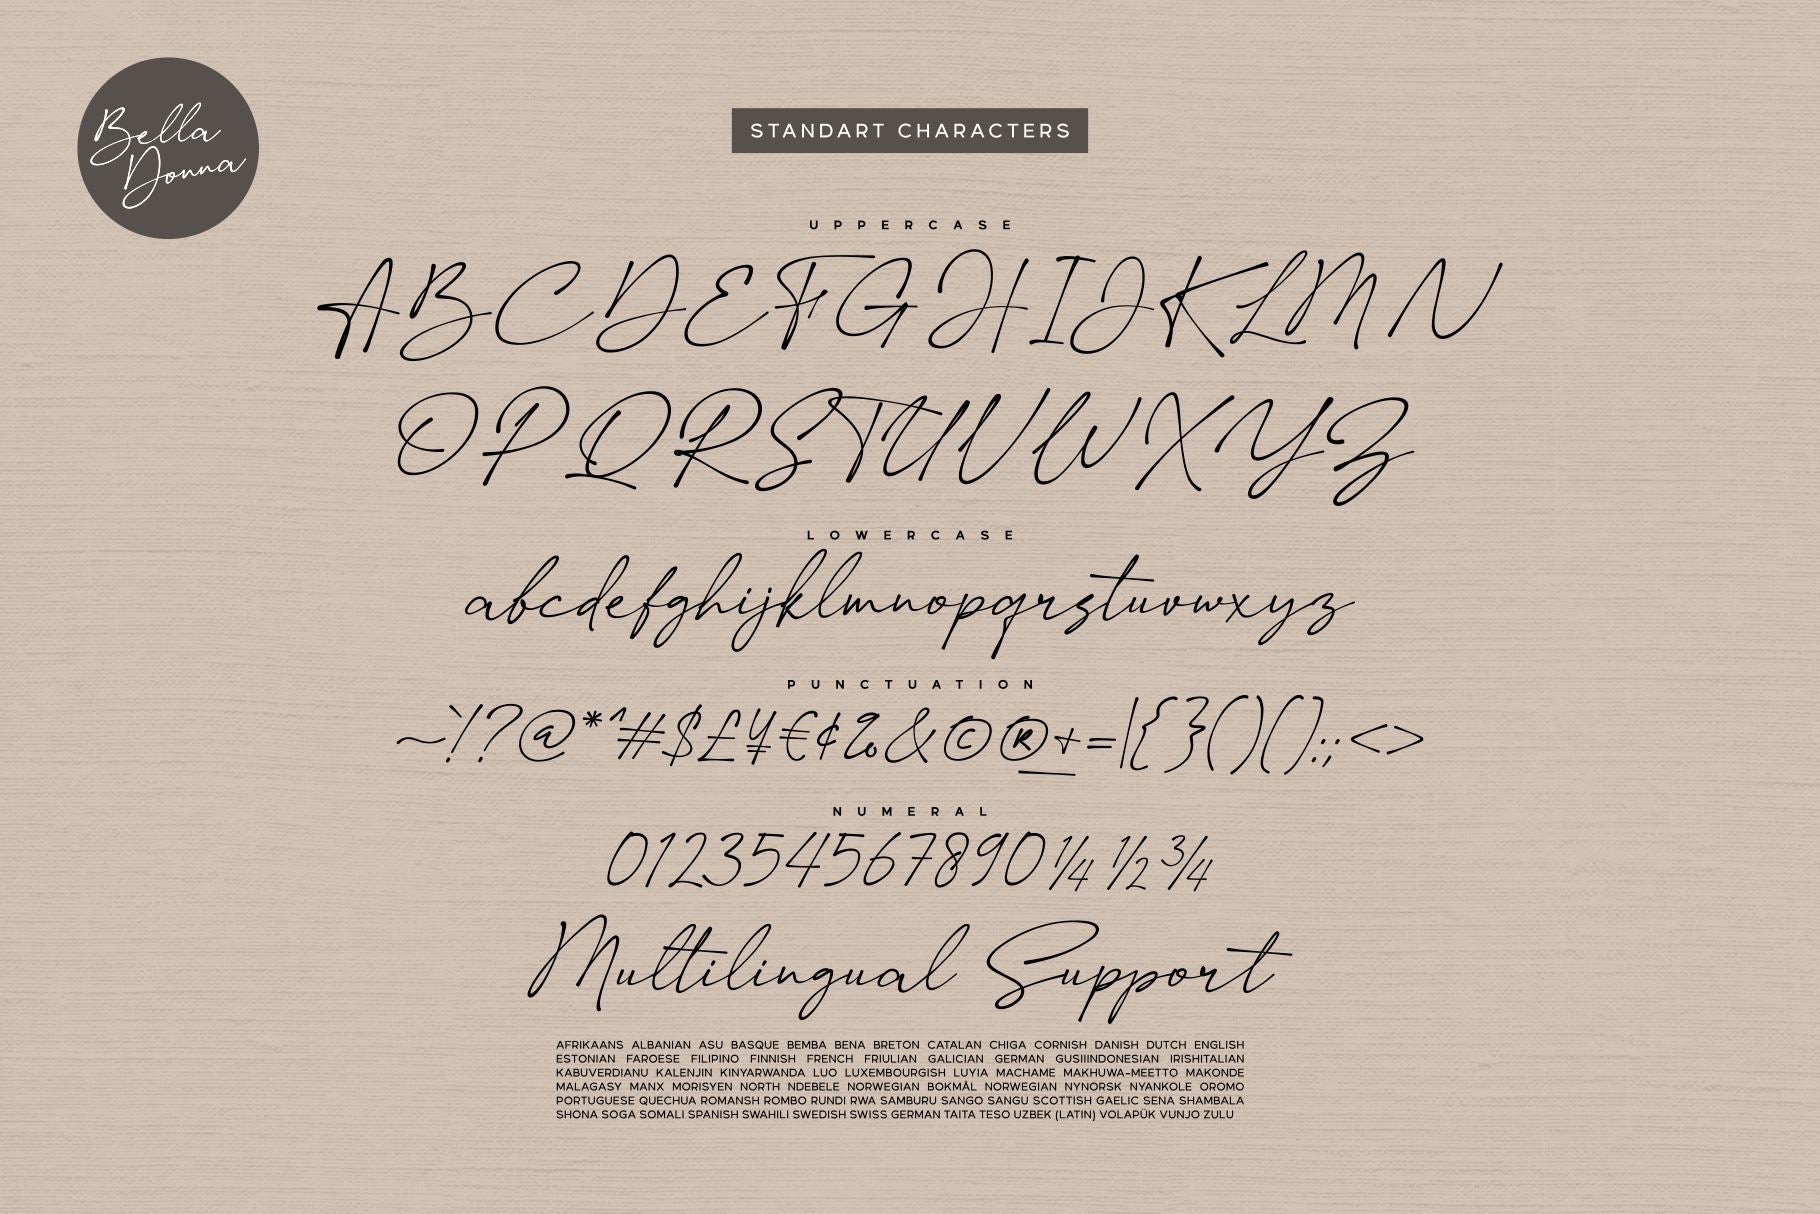 Bella
Donna
STANDART CHARACTERS
UPPERCASE
ABCDEFGHIJKLMN
OPQRSTUVWXYZ
LOWERCASE
abcdefghijklmnopqrstuvwxyz
PUNCTUATION
~`!?@*^#$£¥€¢%&©®_+=|{}()():;<>
NUMERAL
012354567890¼ ½ ¾
Multilingual Support
AFRIKAANS ALBANIAN ASU BASQUE BEMBA BENA BRETON CATALAN CHIGA CORNISH DANISH DUTCH ENGLISH
ESTONIAN FAROESE FILIPINO FINNISH FRENCH FRIULIAN GALICIAN GERMAN GUSIIINDONESIAN IRISHITALIAN
KABUVERDIANU KALENJIN KINYARWANDA LUO LUXEMBOURGISH LUYIA MACHAME MAKHUWA-MEETTO MAKONDE
MALAGASY MANX MORISYEN NORTH NDEBELE NORWEGIAN BOKMÅL NORWEGIAN NYNORSK NYANKOLE OROMO
PORTUGUESE QUECHUA ROMANSH ROMBO RUNDI RWA SAMBURU SANGO SANGU SCOTTISH GAELIC SENA SHAMBALA
SHONA SOGA SOMALI SPANISH SWAHILI SWEDISH SWISS GERMAN TAITA TESO UZBEK (LATIN) VOLAPÜK VUNJO ZULU